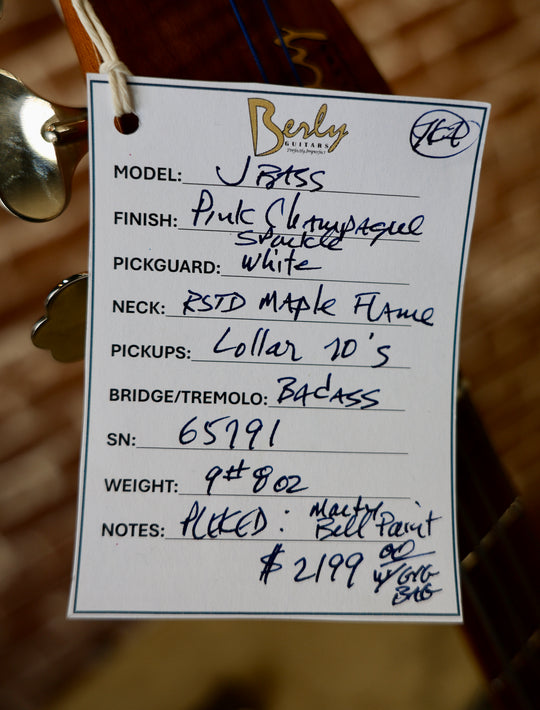 Berly
GUITARS
Perfectly Imperfect
MODEL: J BASS
FINISH: Pink Champagne
Sparkle
PICKGUARD: White
NECK: RSTD MAple FlAme
PICKUPS: Lollar 70's
BRIDGE/TREMOLO: BAdASS
SN: 65791
WEIGHT: 9# 8oz
NOTES: PLEKED: Marty
Bell Paint
$2199 00
w/GIG
BAG